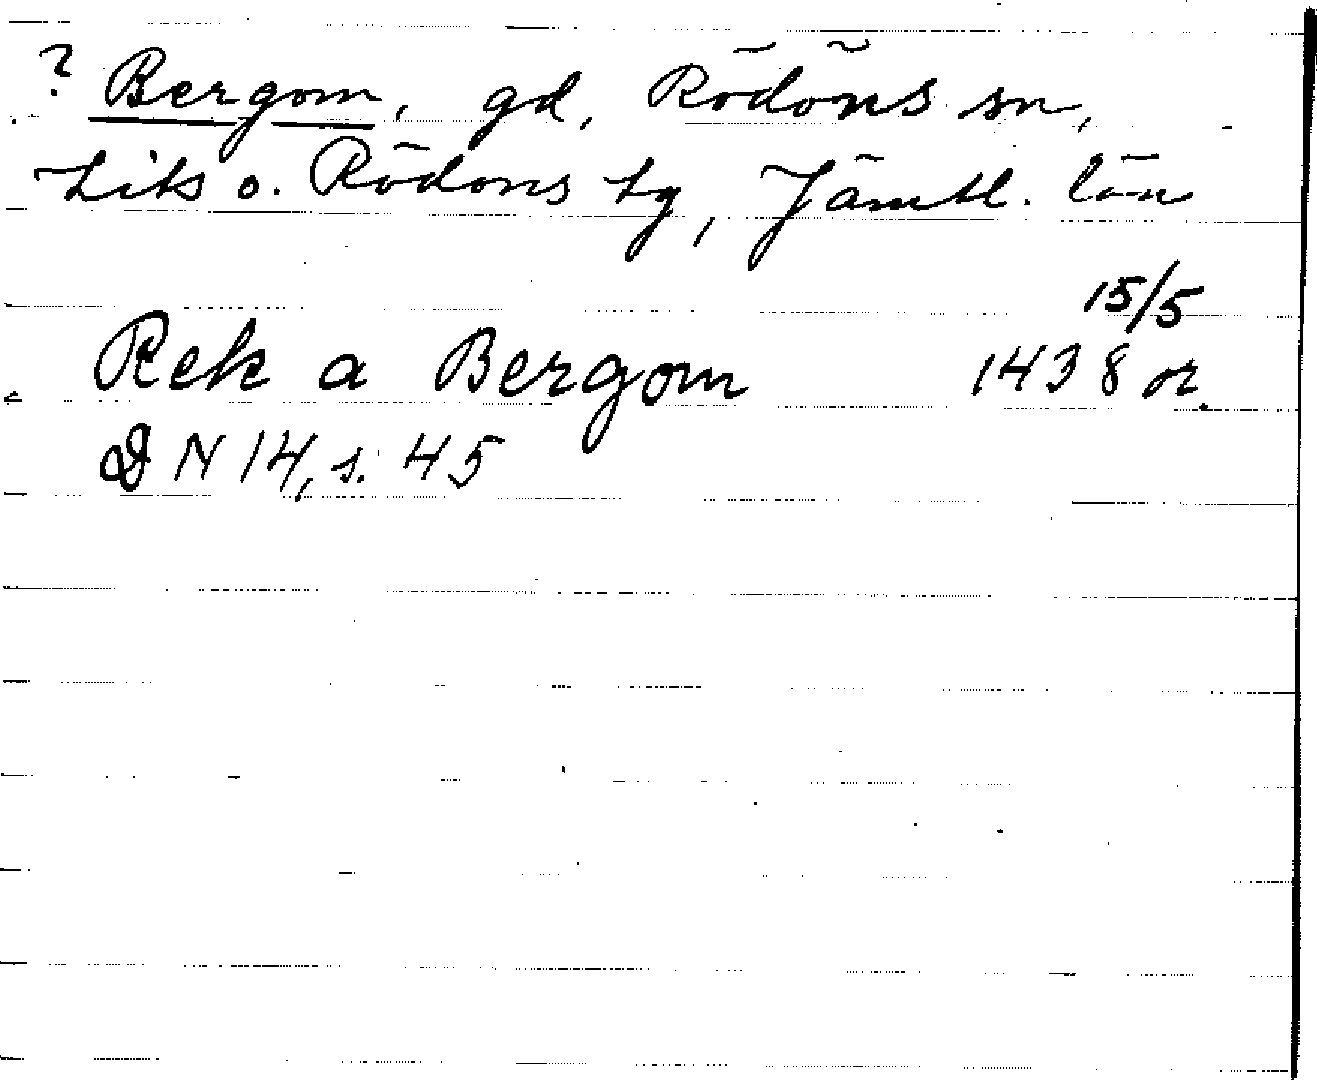 ? Bergom, gd, Rödöns sn,
Lits o. Rödöns tg, Jämtl. län
15/5
Rek a Bergom 1438 or.
DN 14, s. 45